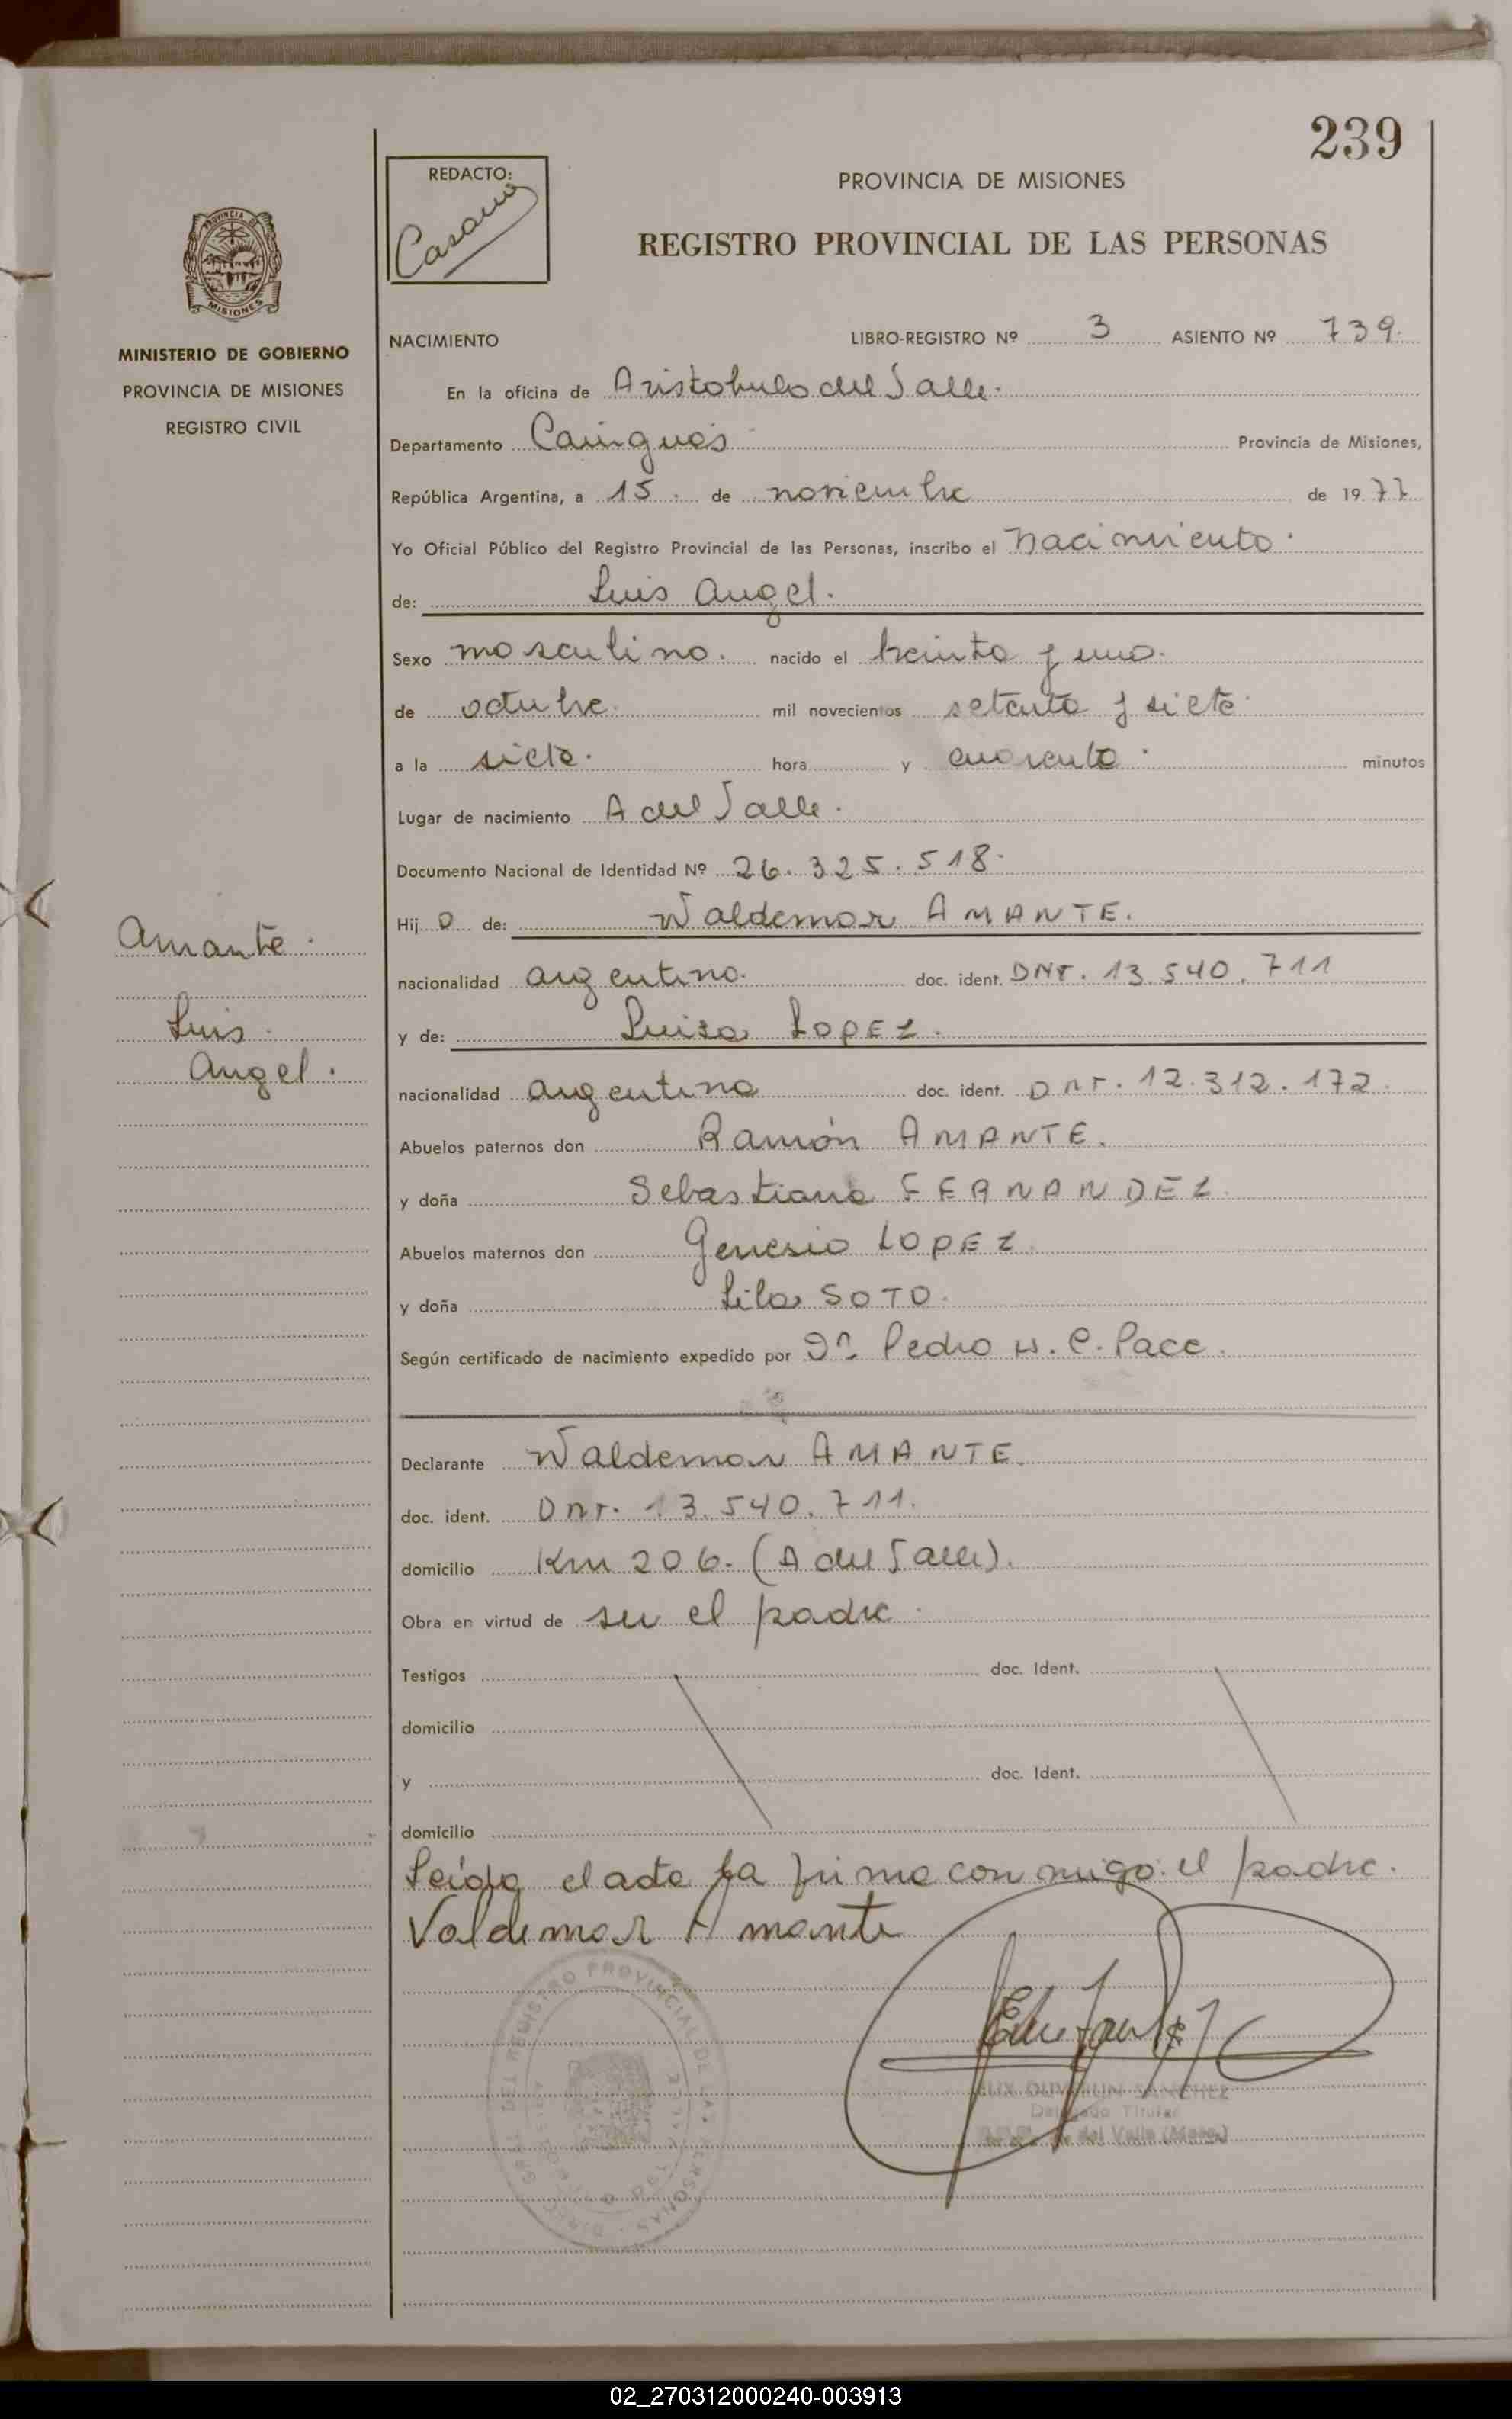 239
REDACTO:
PROVINCIA DE MISIONES
REGISTRO PROVINCIAL DE LAS PERSONAS
MINISTERIO DE GOBIERNO
PROVINCIA DE MISIONES
REGISTRO CIVIL
NACIMIENTO LIBRO-REGISTRO Nº 3 ASIENTO Nº 739.
En la oficina de Aristobulo del Valle.
Departamento Cainguás Provincia de Misiones,
República Argentina, a 15. de noviembre de 1977
Yo Oficial Público del Registro Provincial de las Personas, inscribo el nacimiento.
de: Luis Angel.
Sexo masculino. nacido el treinta y uno.
de octubre. mil novecientos setenta y siete.
a la siete. hora y cuarenta. minutos
Lugar de nacimiento A del Valle.
Documento Nacional de Identidad Nº 26.325.518.
Hij o de: Waldemar AMANTE.
Amante.
nacionalidad argentino. doc. ident. DNI. 13.540.711
Luis.
y de: Luisa LOPEZ.
Angel.
nacionalidad argentina doc. ident. DNI. 12.312.172.
Abuelos paternos don Ramón AMANTE.
y doña Sebastiana FERNANDEZ.
Abuelos maternos don Genesio LOPEZ.
y doña Lila SOTO.
Según certificado de nacimiento expedido por Dr. Pedro W. C. Pace.
Declarante Waldemar AMANTE.
doc. ident. DNI. 13.540.711.
domicilio Km 206. (A del Valle).
Obra en virtud de ser el padre.
Testigos doc. Ident.
domicilio
y doc. Ident.
domicilio
Leida el acta la firma con migo el padre.
Valdemar Amante
REGISTRO PROVINCIAL DE LAS PERSONAS
SANCHEZ
Delegado Titular
del Valle (Mnes.)
02_270312000240-003913